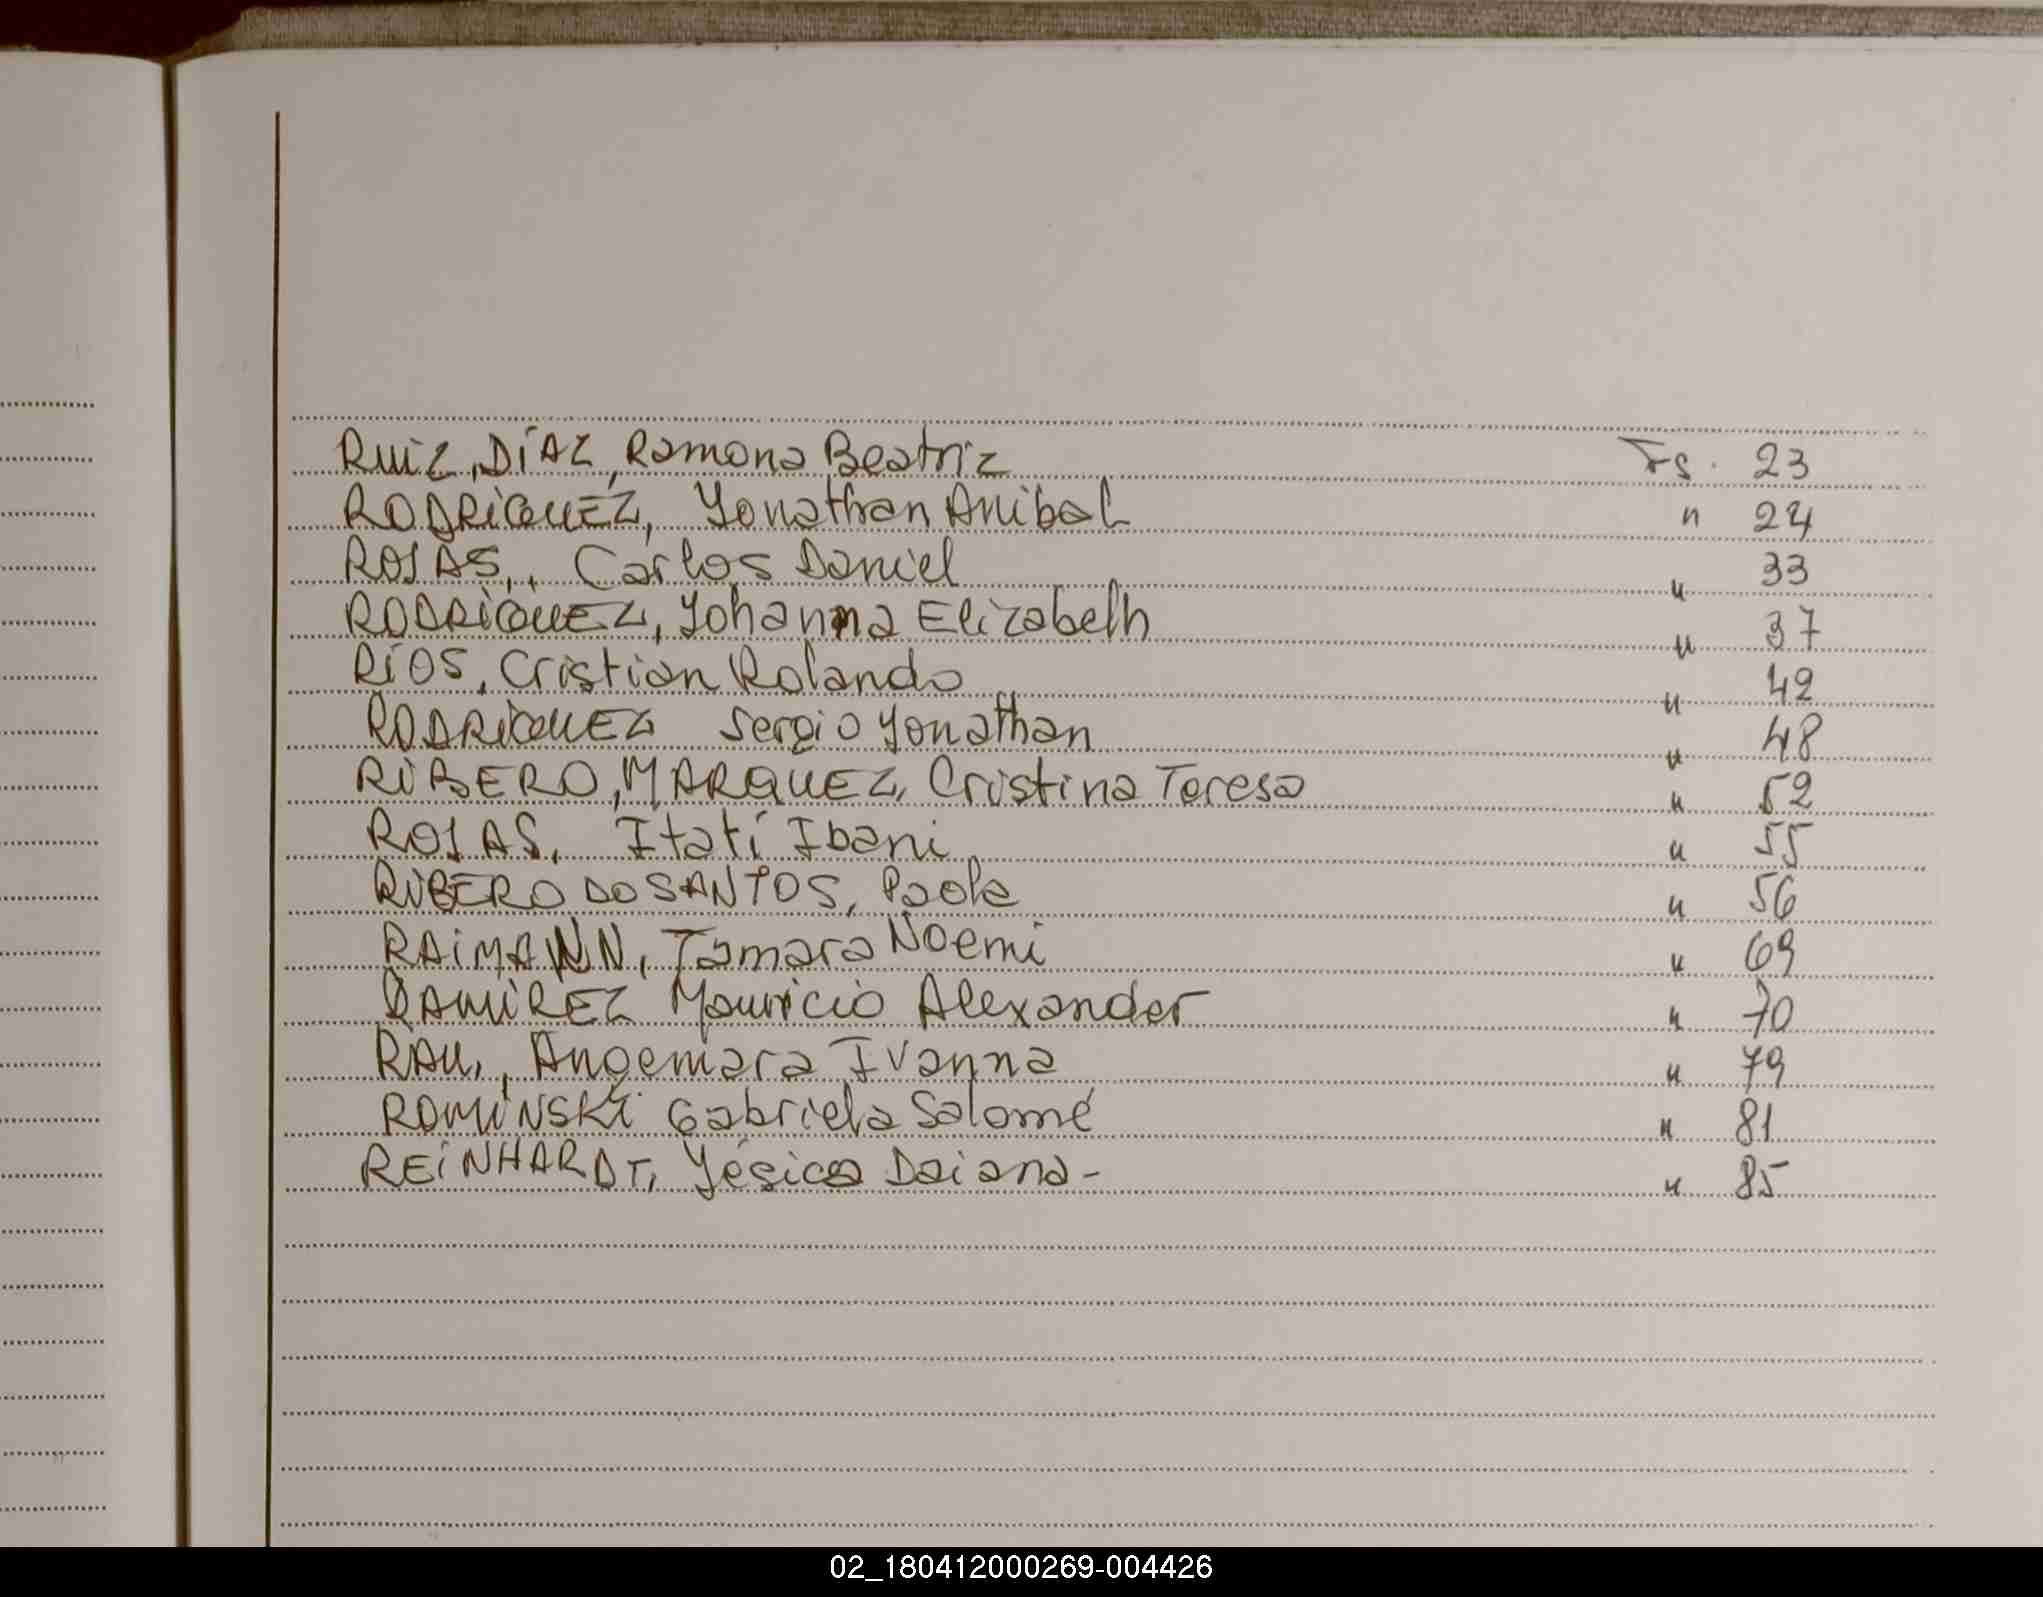 RUIZ, DÍAZ, Ramona Beatriz Fs. 23
RODRIGUEZ, Yonathan Anibal " 24
ROJAS, Carlos Daniel " 33
RODRIGUEZ, Yohanna Elizabeth " 37
RÍOS, Cristian Rolando " 42
RODRIGUEZ Sergio Yonathan " 48
RIBERO, MARQUEZ, Cristina Teresa " 52
ROJAS, Itatí Ibani " 55
RIBERO DO SANTOS, Paola " 56
RAIMANN, Tamara Noemi " 69
RAMIREZ Mauricio Alexander " 70
RAU, Angemara Ivanna " 79
ROMINSKI Gabriela Salomé " 81
REINHARDT, Yésica Daiana- " 85
02_180412000269-004426